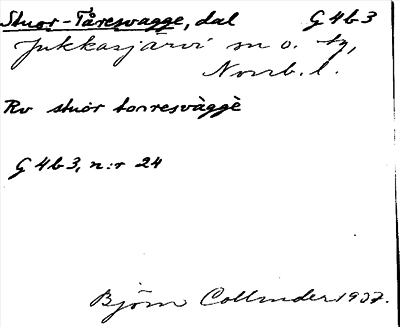 Stuor-Tåresvagge, dal G4b3
Jukkasjärvi sn o. tg,
Norrb. l.
Rv stuor tɔrresvàggè
G4b3, n:r 24
Björn Collinder 1937.